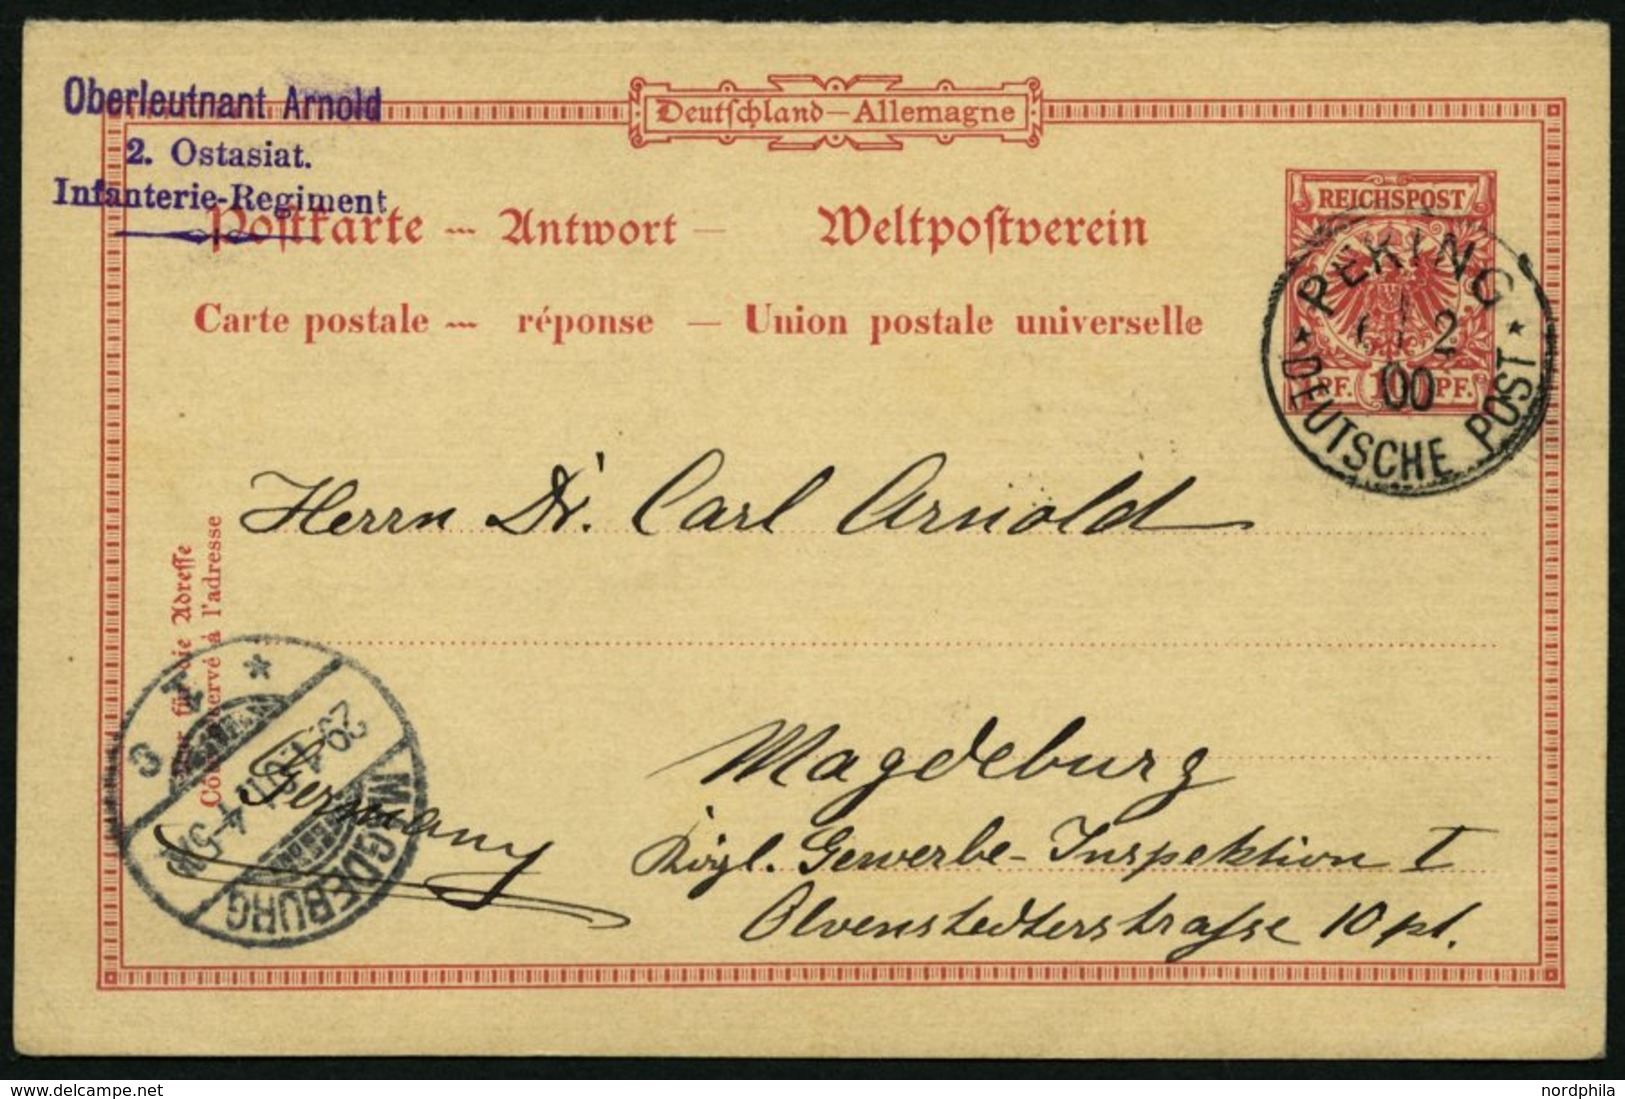 Oberleutnant Arnold
2. Ostasiat.
Infanterie-Regiment
Deutschland—Allemagne
Postkarte — Antwort — Weltpostverein
Carte postale — réponse — Union postale universelle
REICHSPOST
PF. 10 PF.
PEKING
2
00
DEUTSCHE POST
Herrn Dr. Carl Arnold
Magdeburg
Kögl. Gewerbe-Inspektion I
Olvenstedterstrasse 10 pt.
Germany
Nur für die Adresse
Côté réservé à l'adresse
MAGDEBURG
4-5N
nordphila